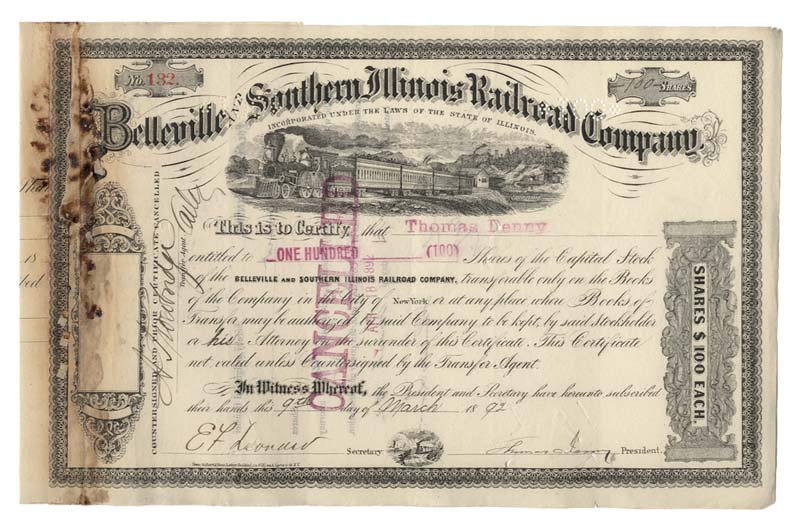 No. 132.
100 SHARES
Belleville AND Southern Illinois Railroad Company.
INCORPORATED UNDER THE LAWS OF THE STATE OF ILLINOIS.
This is to Certify, that Thomas Denny
entitled to ONE HUNDRED (100) Shares of the Capital Stock
of the BELLEVILLE AND SOUTHERN ILLINOIS RAILROAD COMPANY, transferable only on the Books
of the Company in the City of New York or at any place where Books of
Transfer may be authorized by said Company to be kept, by said Stockholder
or his Attorney on the surrender of this Certificate. This Certificate
not valid unless Countersigned by the Transfer Agent.
In Witness Whereof, the President and Secretary have hereunto subscribed
their hands this 9th day of March 1892
E F Leonard Secretary Thomas Denny President.
COUNTERSIGNED AND PRIOR CERTIFICATE CANCELLED
Transfer Agent
CANCELLED
SHARES $100 EACH.
18